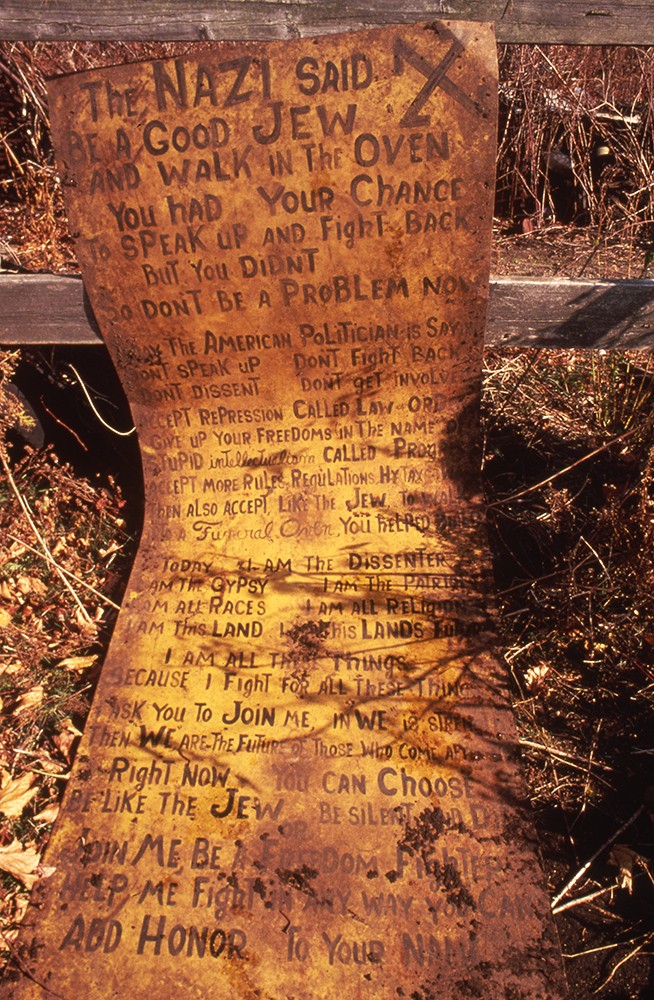 The NAZI SAID
BE A GOOD JEW
AND WALK IN The OVEN
YOU HAD YOUR CHANCE
TO SPEAK UP AND FIGHT BACK
BUT YOU DIDNT
SO DONT BE A PROBLEM NOW
THE AMERICAN POLITICIAN IS SAY
DONT SPEAK UP DONT FIGHT BACK
DONT DISSENT DONT GET INVOLVE
ACCEPT REPRESSION CALLED LAW
GIVE UP YOUR FREEDOMS IN THE NAME OF
STUPID intellectualism CALLED
ACCEPT MORE RULES, REGULATIONS, HY TAX
THEN ALSO ACCEPT, LIKE THE JEW, TO
A Funeral Oven, YOU HELPED
TODAY I AM THE DISSENTER
I AM THE GYPSY I AM THE
I AM ALL RACES I AM ALL RELIGION
I AM THIS LAND, THIS LANDS
I AM ALL THESE THINGS
BECAUSE I FIGHT FOR ALL THESE THING
ASK YOU TO JOIN ME, IN "WE" IS
THEN WE ARE THE FUTURE OF THOSE WHO COME
RIGHT NOW YOU CAN CHOOSE
BE LIKE THE JEW BE SILENT AND
OR
JOIN ME, BE A FREEDOM FIGHTER
HELP ME FIGHT IN ANY WAY YOU CAN
ADD HONOR TO YOUR